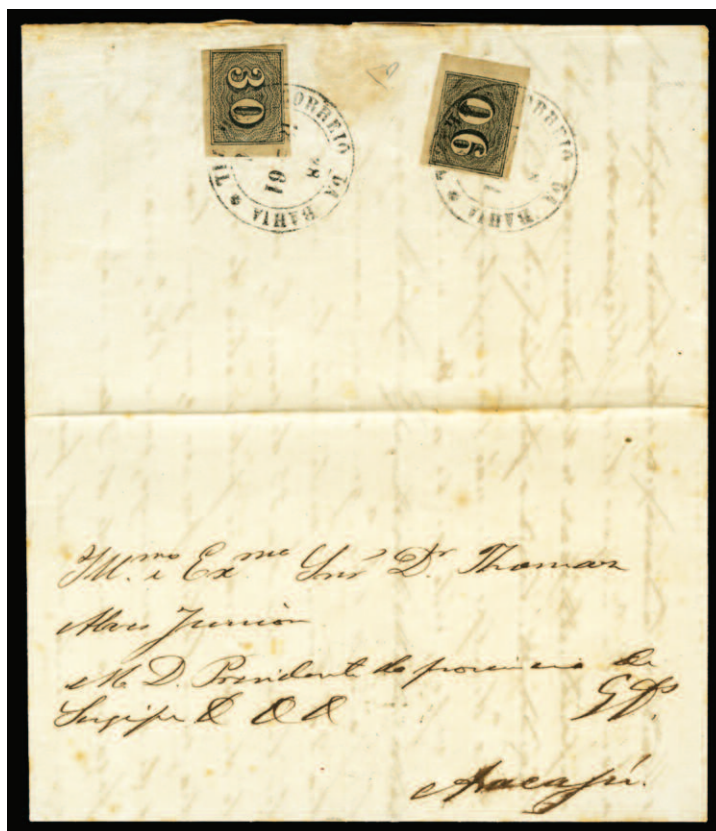 30
90
CORREIO DA BAHIA
61
CORREIO DA BAHIA
Ill.mo e Exmo Snr Dr Thomaz
Alves Junior
M. D. Presidente da provincia de
Sergipe & & & G. Ds.
Aracajú.